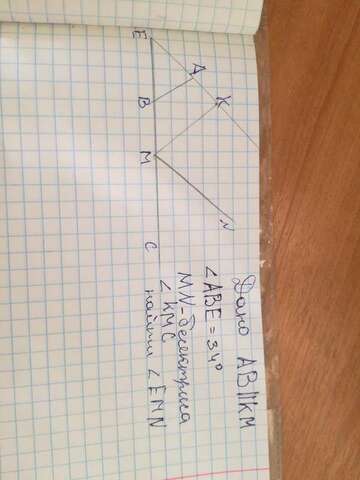 E
A
K
B
M
N
C
Дано AB||KM
∠ABE = 34°
MN - биссектриса
∠KMC
найти ∠EMN